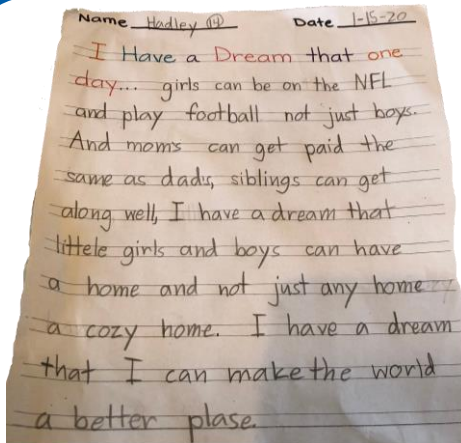 Name Hadley (14) Date 1-15-20
I Have a Dream that one
day... girls can be on the NFL
and play football not just boys.
And mom's can get paid the
same as dad's, siblings can get
along well, I have a dream that
littele girls and boys can have
a home and not just any home
a cozy home. I have a dream
that I can make the world
a better plase.